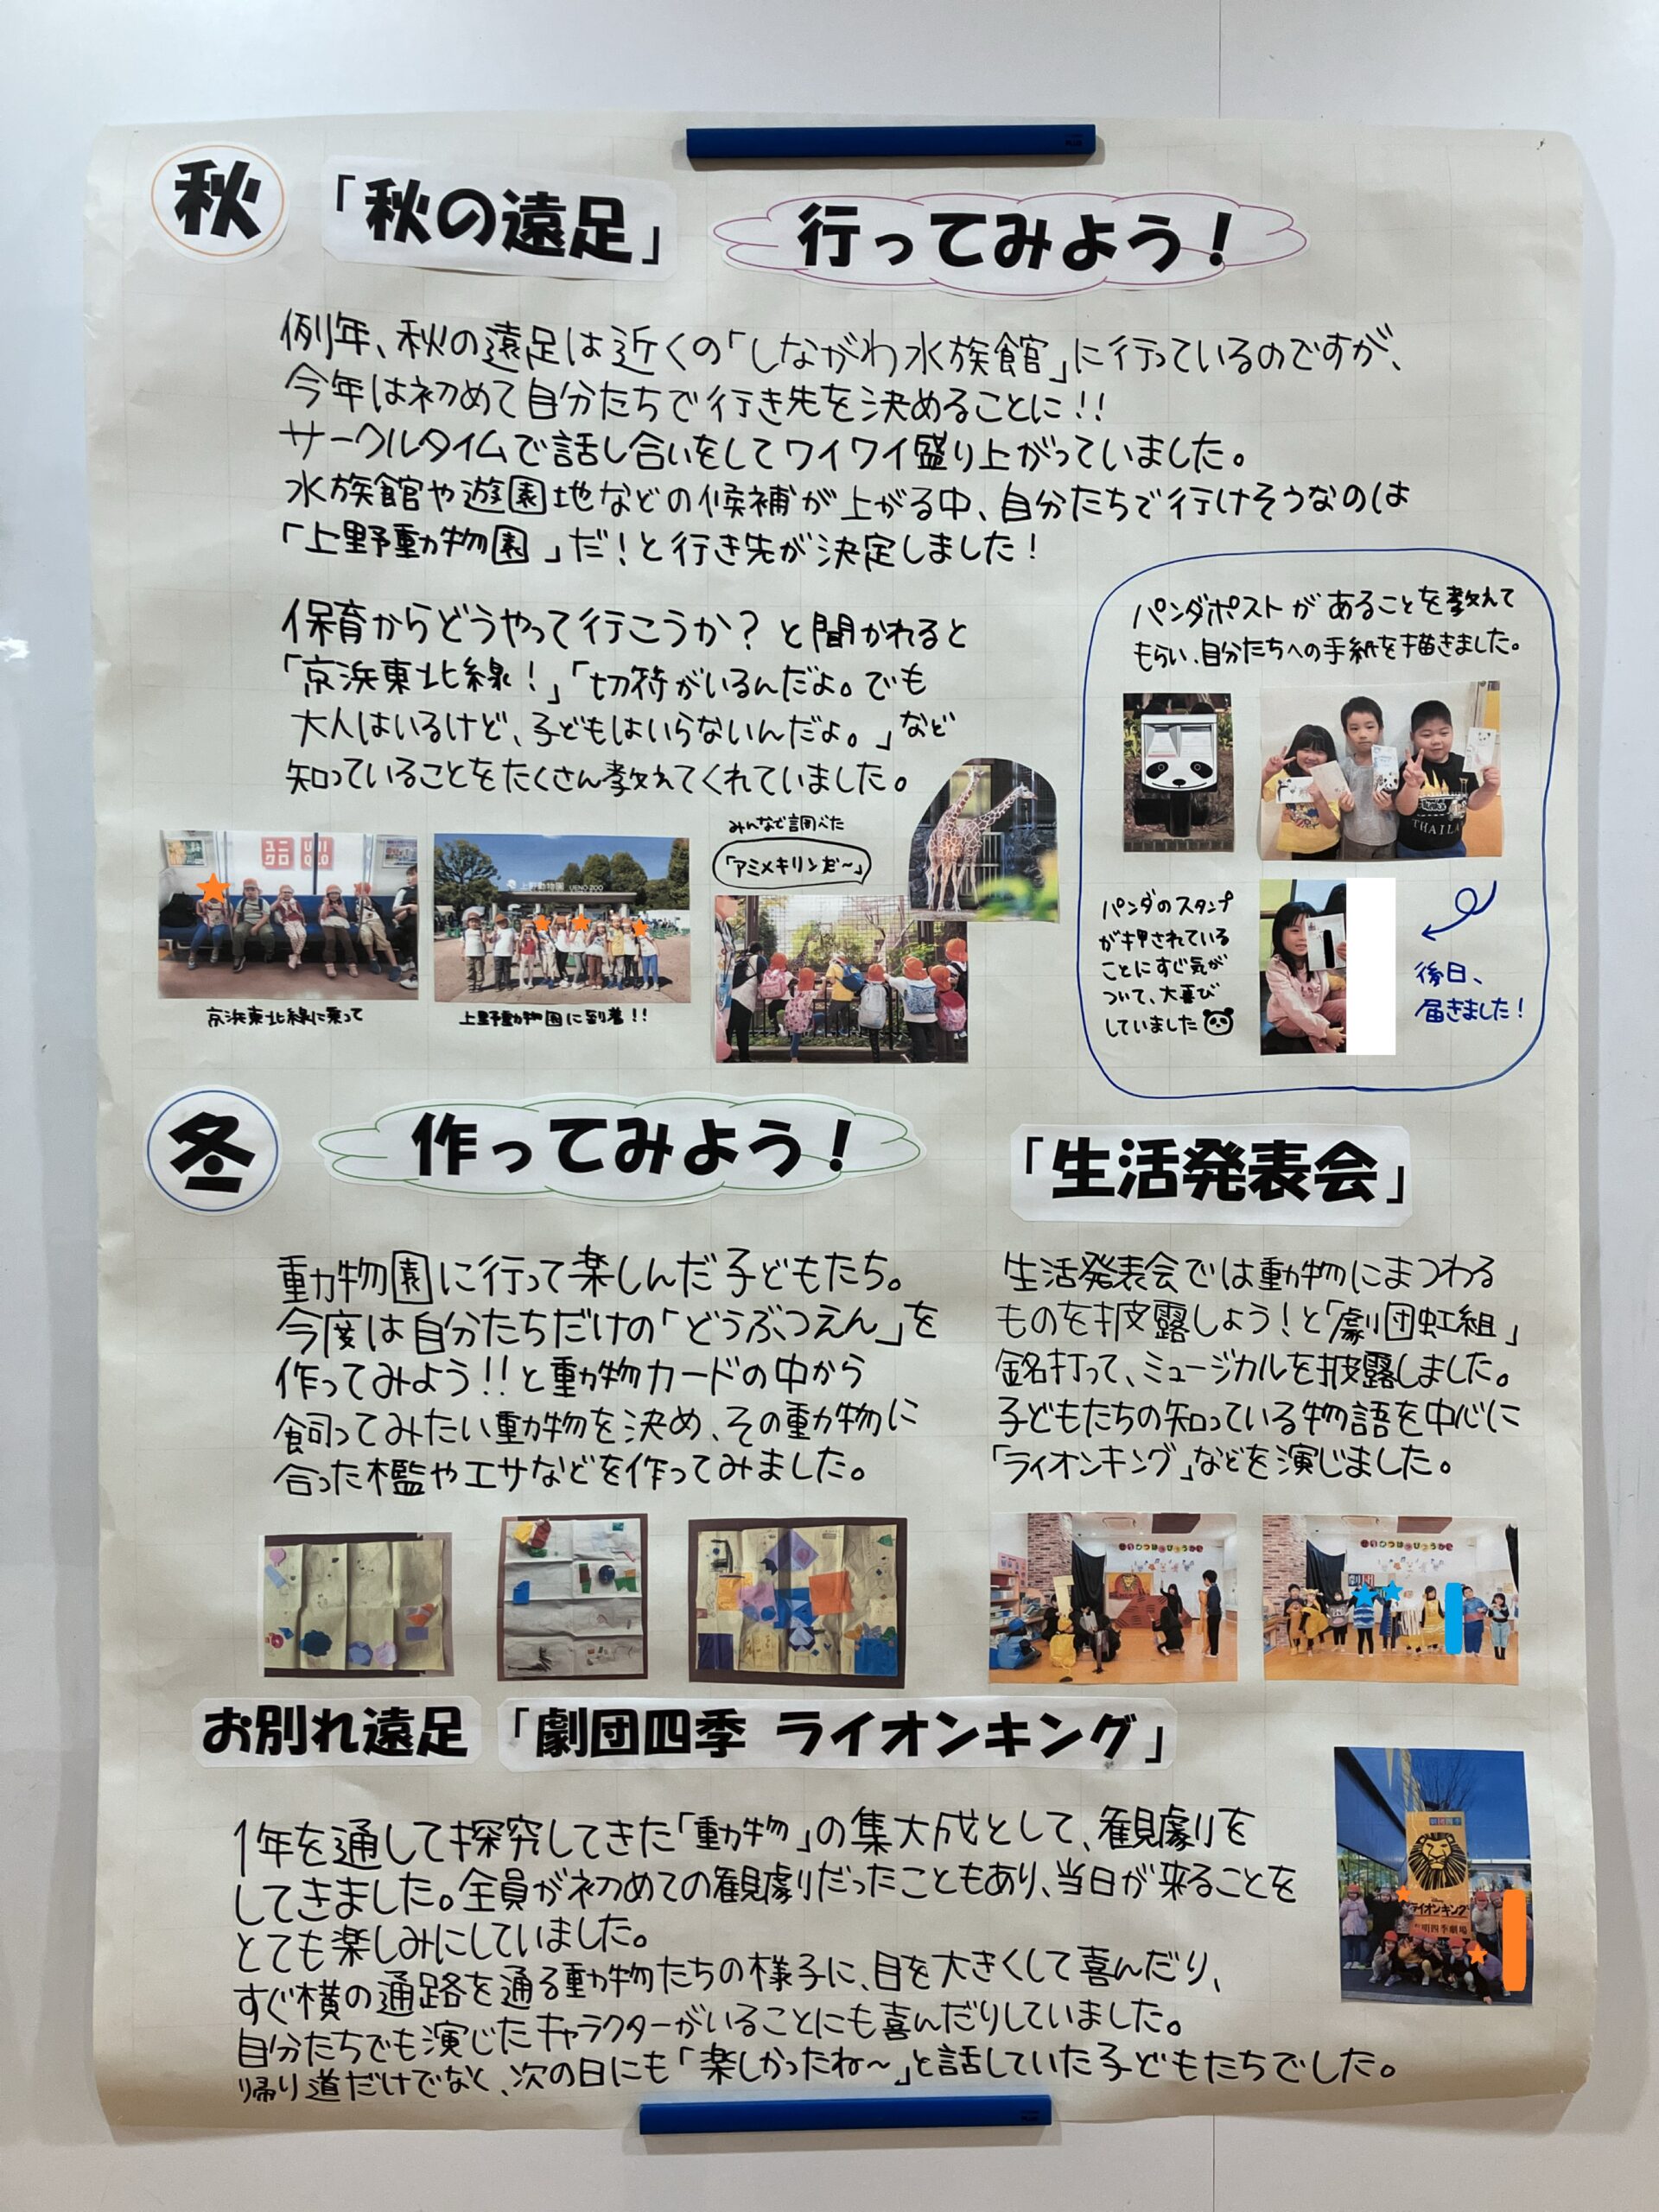 秋
「秋の遠足」
行ってみよう！
例年、秋の遠足は近くの「しながわ水族館」に行っているのですが、
今年は初めて自分たちで行き先を決めることに!!
サークルタイムで話し合いをしてワイワイ盛り上がっていました。
水族館や遊園地などの候補が上がる中、自分たちで行けそうなのは
「上野動物園」だ！と行き先が決定しました！
保育からどうやって行こうか？と聞かれると
「京浜東北線！」「切符がいるんだよ。でも
大人はいるけど、子どもはいらないんだよ。」など
知っていることをたくさん教えてくれていました。
ユニクロ
UNIQLO
京浜東北線に乗って
上野動物園 UENO ZOO
上野動物園に到着!!
みんなで調べた
「アミメキリンだ～」
パンダポストがあることを教えて
もらい、自分たちへの手紙を描きました。
THAILA
パンダのスタンプ
が押されている
ことにすぐ気が
ついて、大喜び
していました
後日、
届きました！
冬
作ってみよう！
動物園に行って楽しんだ子どもたち。
今度は自分たちだけの「どうぶつえん」を
作ってみよう!!と動物カードの中から
飼ってみたい動物を決め、その動物に
合った檻やエサなどを作ってみました。
「生活発表会」
生活発表会では動物にまつわる
ものを披露しよう！と「劇団虹組」
銘打って、ミュージカルを披露しました。
子どもたちの知っている物語を中心に
「ライオンキング」などを演じました。
お別れ遠足
「劇団四季 ライオンキング」
1年を通して探究してきた「動物」の集大成として、観劇を
してきました。全員が初めての観劇だったこともあり、当日が来ることを
とても楽しみにしていました。
すぐ横の通路を通る動物たちの様子に、目を大きくして喜んだり、
自分たちでも演じたキャラクターがいることにも喜んだりしていました。
帰り道だけでなく、次の日にも「楽しかったね～」と話していた子どもたちでした。
劇団四季
ライオンキング
明四季劇場